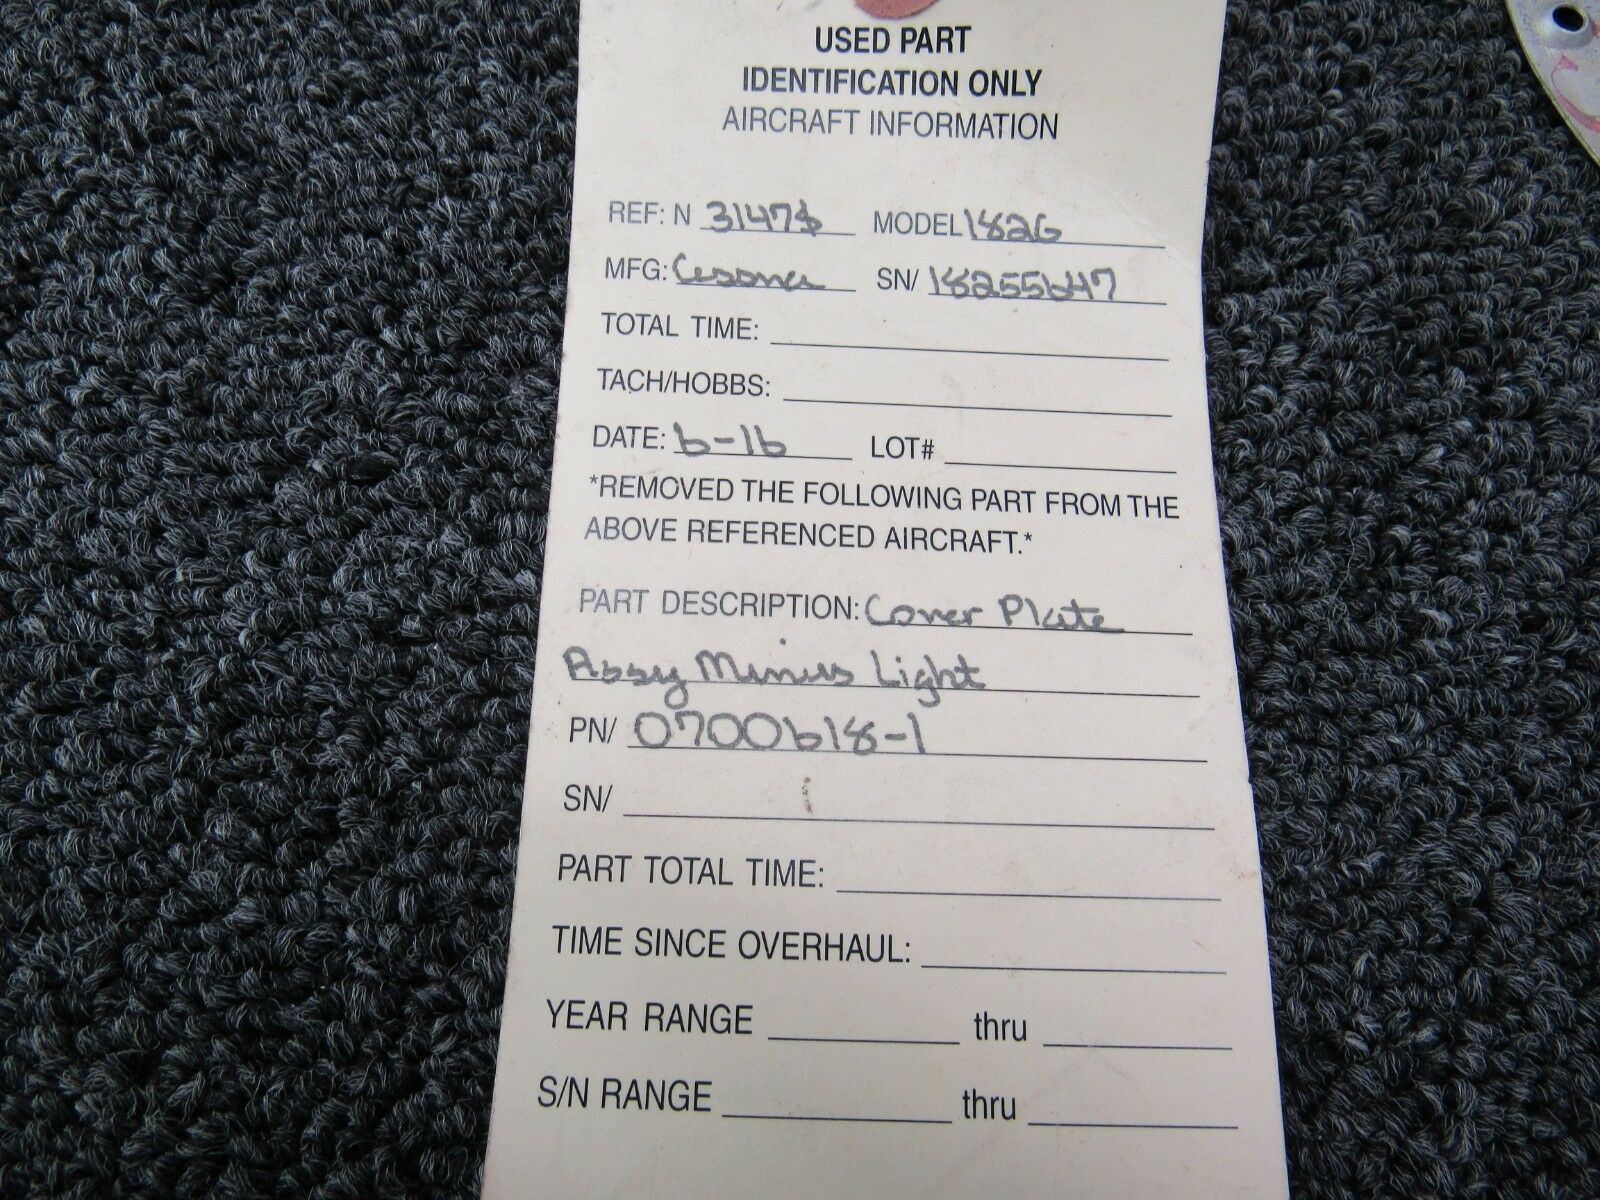 USED PART
IDENTIFICATION ONLY
AIRCRAFT INFORMATION
REF: N 3147S MODEL 182G
MFG: Cessna SN/ 18255647
TOTAL TIME:
TACH/HOBBS:
DATE: 6-16 LOT#
*REMOVED THE FOLLOWING PART FROM THE
ABOVE REFERENCED AIRCRAFT.*
PART DESCRIPTION: Cover Plate
Assy Minus Light
PN/ 0700618-1
SN/
PART TOTAL TIME:
TIME SINCE OVERHAUL:
YEAR RANGE thru
S/N RANGE thru